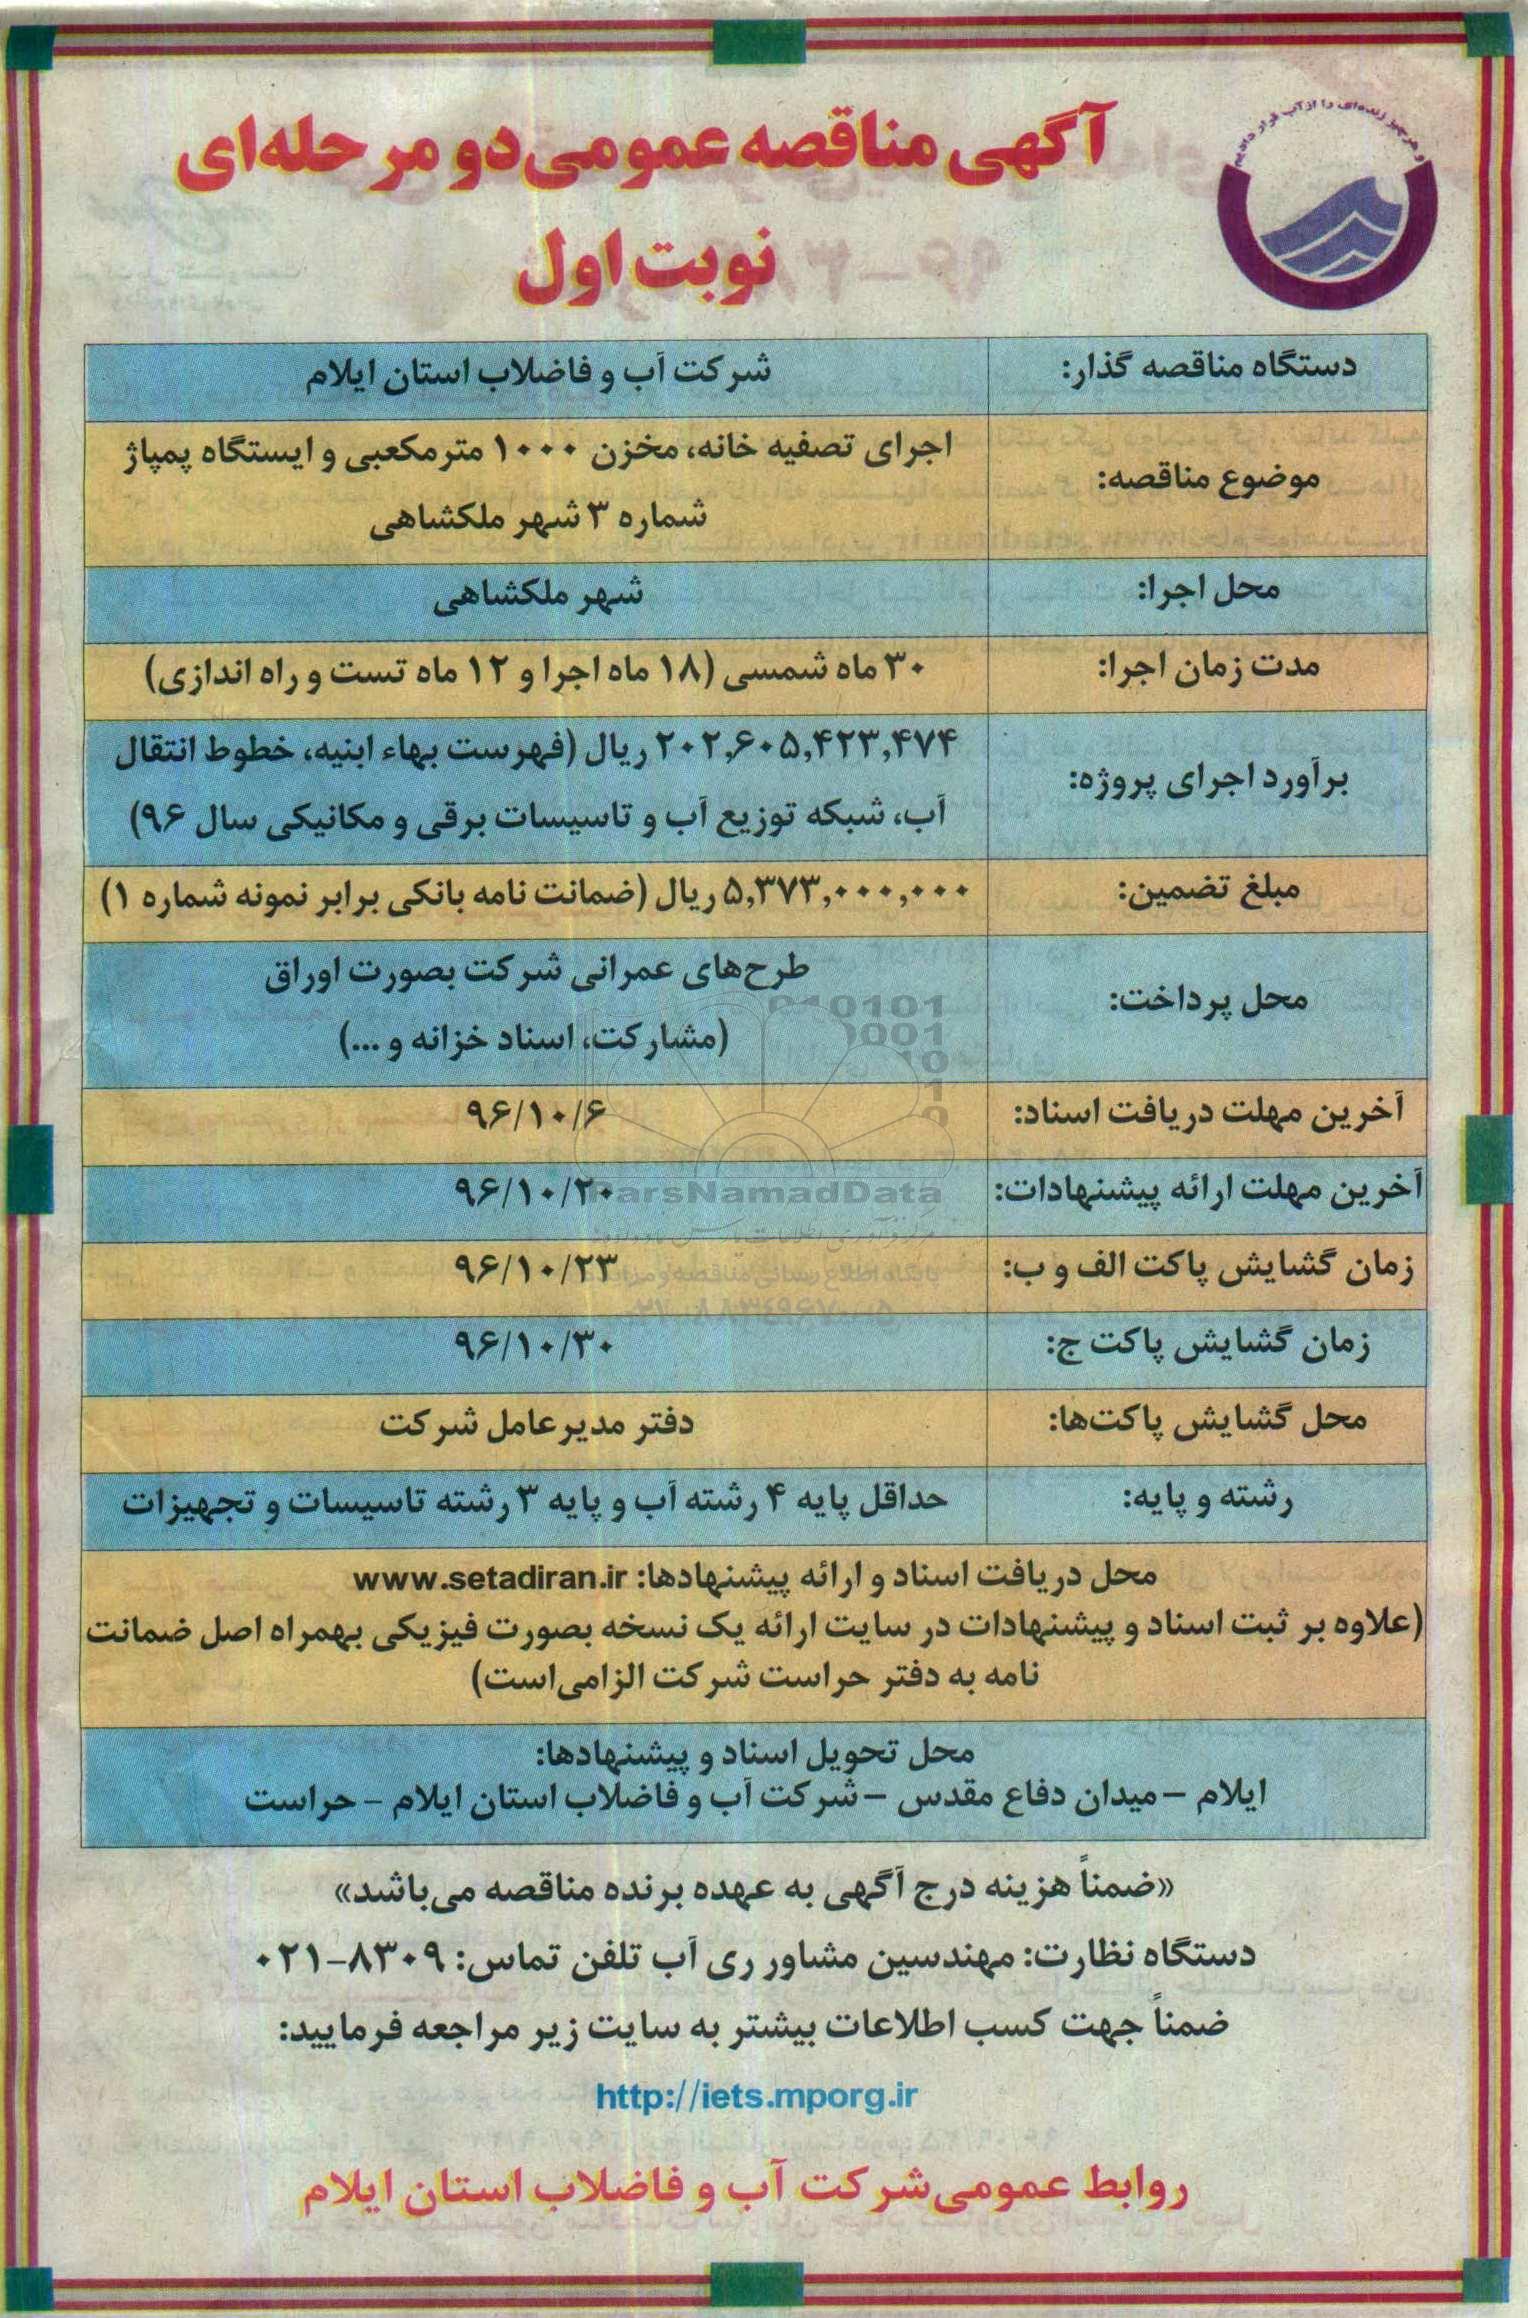 و هر چیز زنده‌ای را از آب قرار دادیم
آگهی مناقصه عمومی دو مرحله‌ای
نوبت اول
دستگاه مناقصه گذار: شرکت آب و فاضلاب استان ایلام
موضوع مناقصه: اجرای تصفیه خانه، مخزن ۱۰۰۰ مترمکعبی و ایستگاه پمپاژ
شماره ۳ شهر ملکشاهی
محل اجرا: شهر ملکشاهی
مدت زمان اجرا: ۳۰ ماه شمسی (۱۸ ماه اجرا و ۱۲ ماه تست و راه اندازی)
برآورد اجرای پروژه: ۲۰۲,۶۰۵,۴۲۳,۴۷۴ ریال (فهرست بهاء ابنیه، خطوط انتقال
آب، شبکه توزیع آب و تاسیسات برقی و مکانیکی سال ۹۶)
مبلغ تضمین: ۵,۳۷۳,۰۰۰,۰۰۰ ریال (ضمانت نامه بانکی برابر نمونه شماره ۱)
محل پرداخت: طرح‌های عمرانی شرکت بصورت اوراق
(مشارکت، اسناد خزانه و ...)
آخرین مهلت دریافت اسناد: ۹۶/۱۰/۶
آخرین مهلت ارائه پیشنهادات: ۹۶/۱۰/۲۰
زمان گشایش پاکت الف و ب: ۹۶/۱۰/۲۳
زمان گشایش پاکت ج: ۹۶/۱۰/۳۰
محل گشایش پاکت‌ها: دفتر مدیرعامل شرکت
رشته و پایه: حداقل پایه ۴ رشته آب و پایه ۳ رشته تاسیسات و تجهیزات
محل دریافت اسناد و ارائه پیشنهادها: www.setadiran.ir
(علاوه بر ثبت اسناد و پیشنهادات در سایت ارائه یک نسخه بصورت فیزیکی بهمراه اصل ضمانت
نامه به دفتر حراست شرکت الزامی‌است)
محل تحویل اسناد و پیشنهادها:
ایلام – میدان دفاع مقدس – شرکت آب و فاضلاب استان ایلام – حراست
«ضمناً هزینه درج آگهی به عهده برنده مناقصه می‌باشد»
دستگاه نظارت: مهندسین مشاور ری آب تلفن تماس: ۸۳۰۹-۰۲۱
ضمناً جهت کسب اطلاعات بیشتر به سایت زیر مراجعه فرمایید:
http://iets.mporg.ir
روابط عمومی شرکت آب و فاضلاب استان ایلام
ParsNamadData
پایگاه اطلاع رسانی مناقصه و مزایده
۰۲۱-۸۸۳۴۹۶۷۰-۵